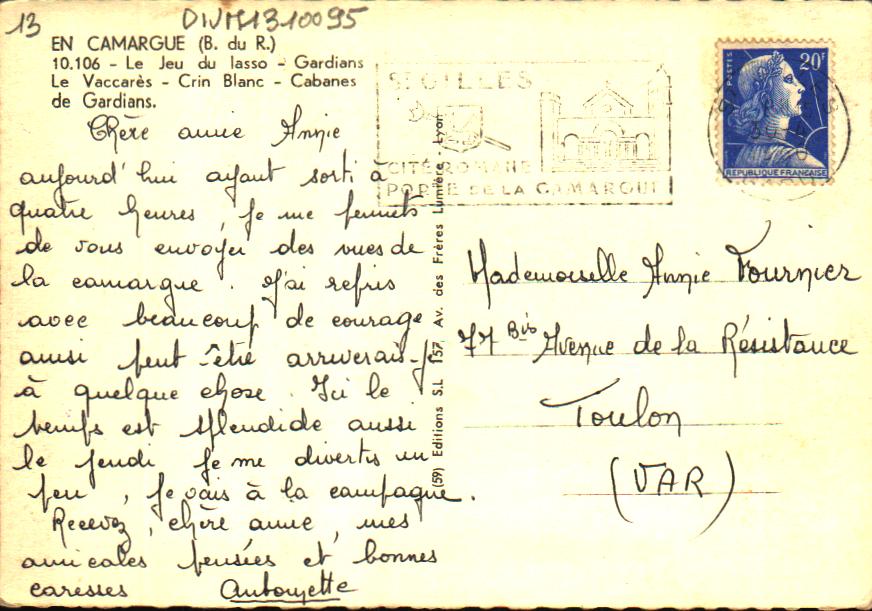 13
DIVM1310095
EN CAMARGUE (B. du R.)
10.106 - Le Jeu du lasso - Gardians
Le Vaccarès - Crin Blanc - Cabanes
de Gardians.
Chère amie Annie
aujourd'hui ayant sorti à
quatre heures, je me permets
de vous envoyer des vues de
la camargue. J'ai repris
avec beaucoup de courage
ainsi peut-être arriverais-je
à quelque chose. Ici le
temps est splendide aussi
le jeudi je me divertis un
peu, je vais à la campagne.
Recevez, chère amie, mes
amicales pensées et bonnes
caresses Antoinette
(59) Editions S.L 157, Av. des Frères Lumière - Lyon
ST GILLES
CITÉ ROMANE
PORTE DE LA CAMARGUE
POSTES
20F
REPUBLIQUE FRANÇAISE
Mademoiselle Annie Fournier
77 Bis Avenue de la Résistance
Toulon
(VAR)